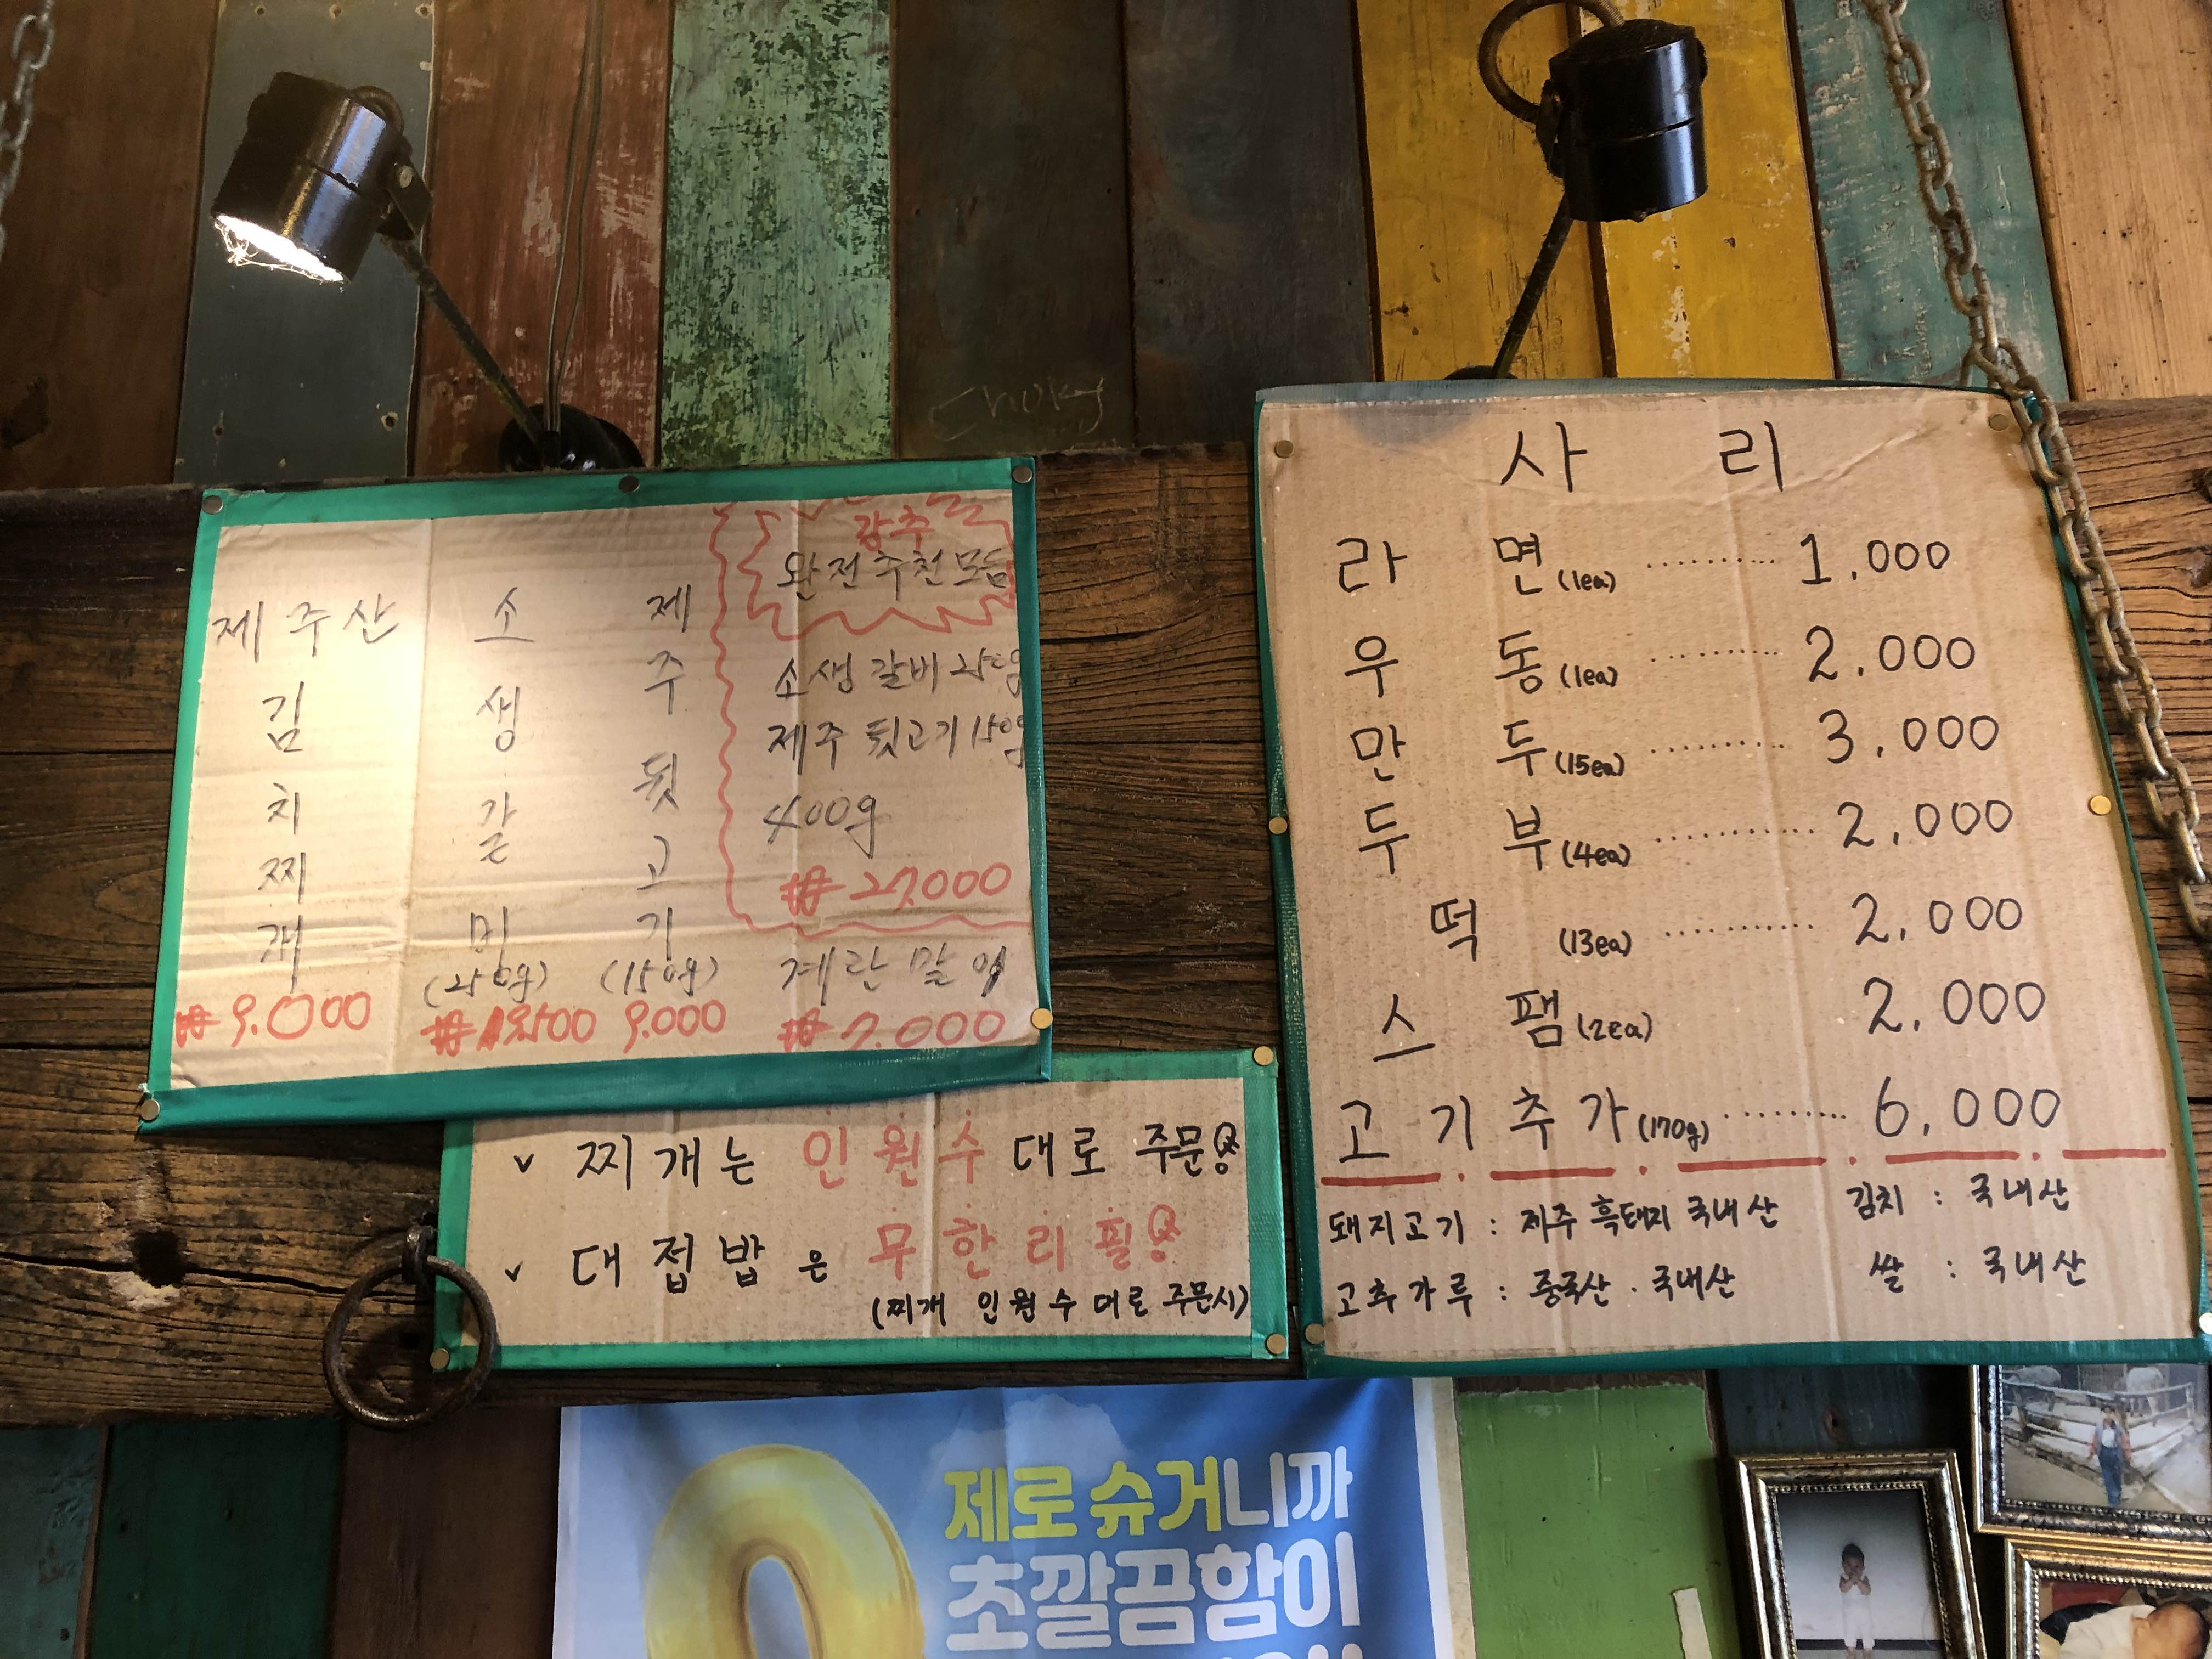 제주산 김치찌개
₩ 9.000
소생갈미
(250g)
제주뒷고기
(150g)
9.000
강추
완전추천모듬
소생갈비 250g
제주 뒷고기 150g
400g
₩ 27.000
계란말이
₩ 7.000
v 찌개는 인원수 대로 주문용
v 대접밥은 무한리필용
(찌개 인원수 대로 주문시)
사 리
라 면 (1ea) ......... 1.000
우 동 (1ea) ......... 2.000
만 두 (15ea) ......... 3.000
두 부 (4ea) ......... 2.000
떡 (13ea) ......... 2.000
스 팸 (2ea) 2.000
고기추가 (170g) ......... 6.000
돼지고기 : 제주 흑돼지 국내산 김치 : 국내산
고추가루 : 중국산 . 국내산 쌀 : 국내산
제로 슈거니까
초깔끔함이
Choky